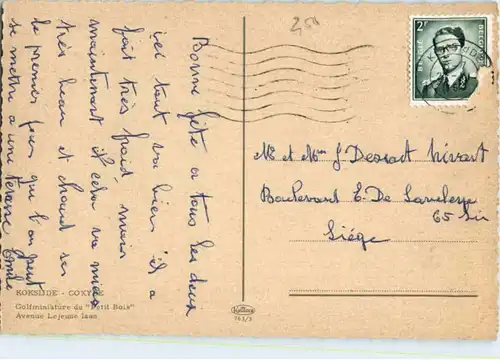 2,50
Bonne fête a tous les deux
ici tout va bien il a
fait très froid, mais
maintenant il va mieux
très beau et chaud
le premier jour que l'on peut
se mettre a une terrasse Emile
2F
BELGIE BELGIQUE
Mr et Mme J. Dessart
Boulevard E. De Laveleye
65
Liège
KOKSIJDE - COXYDE
Golfminiature du "Petit Bois"
Avenue Lejeune laan